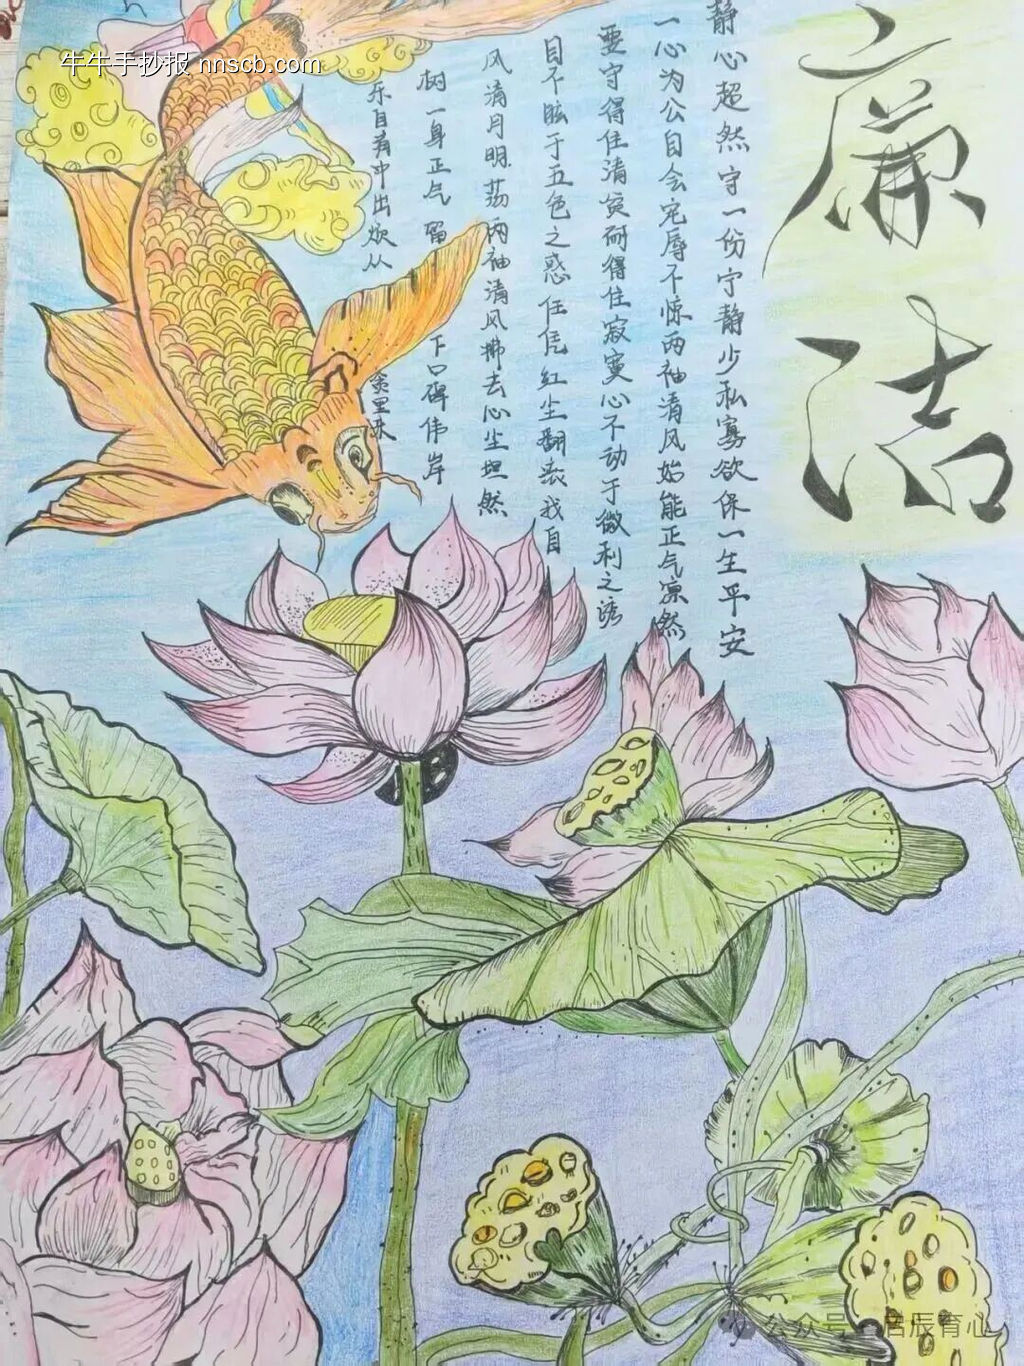 廉洁
静心超然守一份宁静少私寡欲保一生平安
一心为公自会宠辱不惊两袖清风始能正气凛然
要守得住清贫耐得住寂寞心不动于微利之诱
目不眩于五色之惑任凭红尘翻滚我自
风清月明荡两袖清风拂去心尘坦然
树一身正气留下口碑伟岸
乐自有中出欢从
贪里来
牛牛手抄报 nnscb.com
公众号 启辰育心